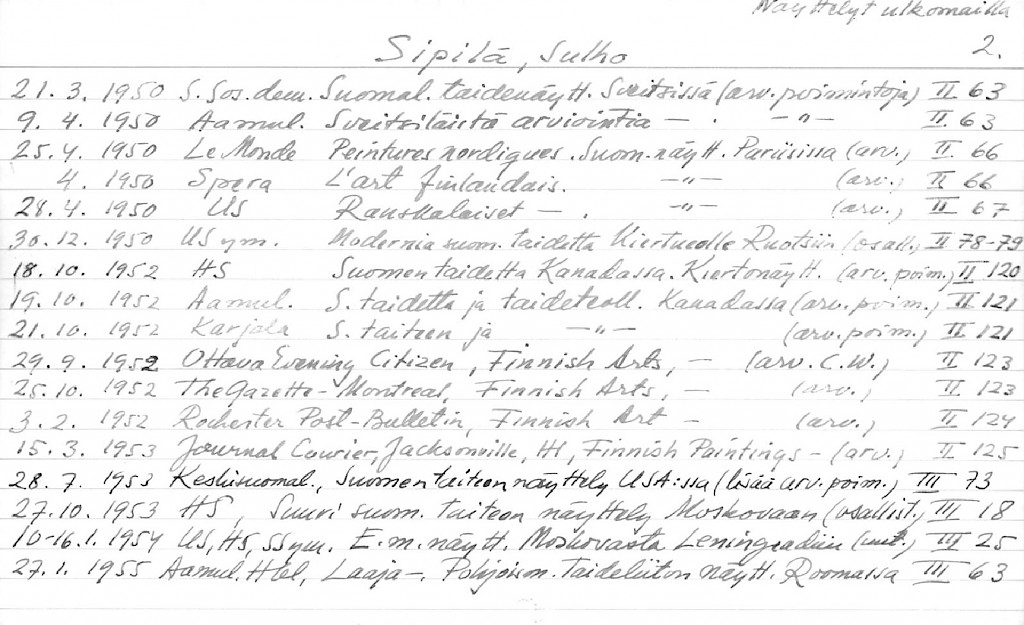 Näyttelyt ulkomailla
2.
Sipilä, Sulho
21. 3. 1950 S. Sos. dem. Suomal. taidenäytt. Sveitsissä (arv. poimintoja) II 63
9. 4. 1950 Aamul. Sveitsiläistä arviointia — . — " — II 63
25. 4. 1950 Le Monde Peintures nordiques. Suom. näytt. Pariisissa (arv.) II 66
4. 1950 Spera L'art finlandais. — " — (arv.) II 66
28. 4. 1950 US Ranskalaiset — . — " — (arv.) II 67
30. 12. 1950 US ym. Modernia suom. taidetta Kiertueelle Ruotsiin (osall.) II 78-79
18. 10. 1952 HS Suomen taidetta Kanadassa. Kiertonäytt. (arv. poim.) II 120
19. 10. 1952 Aamul. S. taidetta ja taideteoll. Kanadassa (arv. poim.) II 121
21. 10. 1952 Karjala S. taiteen ja — " — (arv. poim.) II 121
29. 9. 1952 Ottava Evening Citizen, Finnish Arts, — (arv. C.W.) II 123
25. 10. 1952 The Gazette - Montreal, Finnish Arts, — (arv.) II 123
3. 2. 1952 Rochester Post-Bulletin, Finnish Art — (arv.) II 124
15. 3. 1953 Journal Courier, Jacksonville, Ill, Finnish Paintings - (arv.) II 125
28. 7. 1953 Keskisuomal., Suomen taiteen näyttely USA:ssa (lisää arv. poim.) III 73
27. 10. 1953 HS, Suuri suom. taiteen näyttely Moskovaan (osallist.) III 18
10-16. 1. 1954 US, HS, SS ym. E.m. näytt. Moskovasta Leningradiin III 25
27. 1. 1955 Aamul. Hlel, Laaja —. Pohjoism. Taideliiton näytt. Roomassa III 63